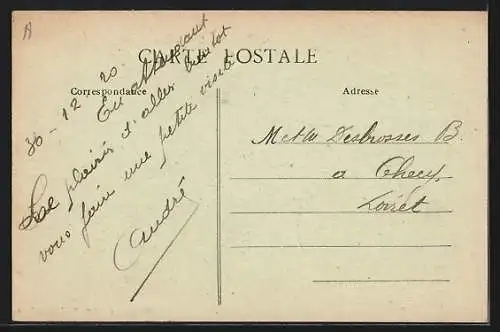 A
CARTE POSTALE
Correspondance
Adresse
26-12-20.
En attendant
Le plaisir d'aller bientot
vous faire une petite visite
André
M et Me Desbrosses B.
a Checy
Loiret